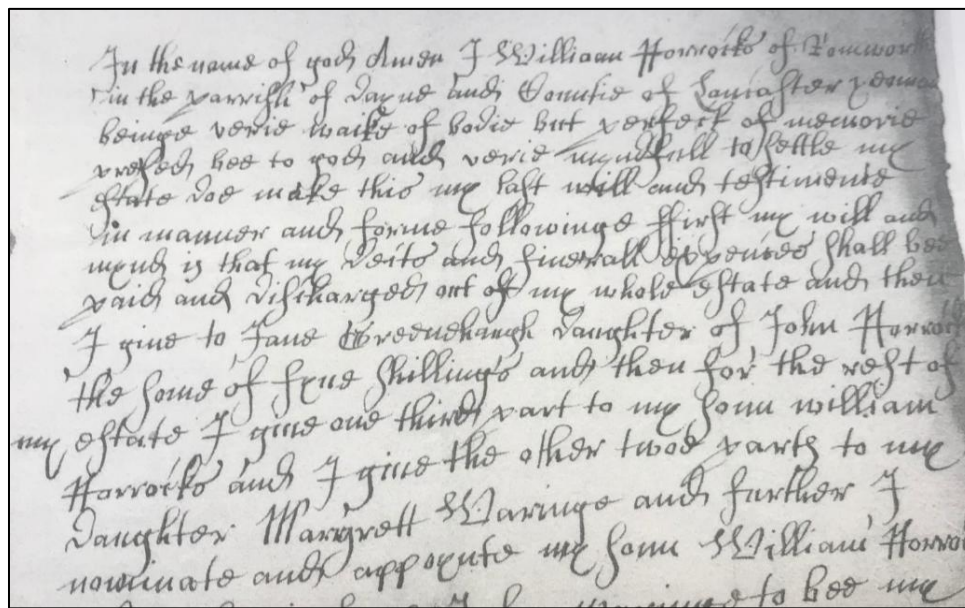 In the name of god Amen I William Horrocks of Tomworth
in the parrish of Dayne and Countie of Lancaster yeoman
beinge verie waike of bodie but perfeck of memorie
presed bee to god and verie myndfull to settle my
estate doe make this my last will and testimente
in manner and forme followinge ffirst my will and
mynd is that my deits and finerall expences shall bee
paid and discharged out of my whole estate and then
I giue to Jane Greenehaugh daughter of John Horrocks
the some of fyue shillings and then for the rest of
my estate I giue one third part to my sonn william
Horrocks and I giue the other twoe parts to my
daughter Margrett Waringe and further I
nominate and appoynte my sonn William Horroc
to bee my